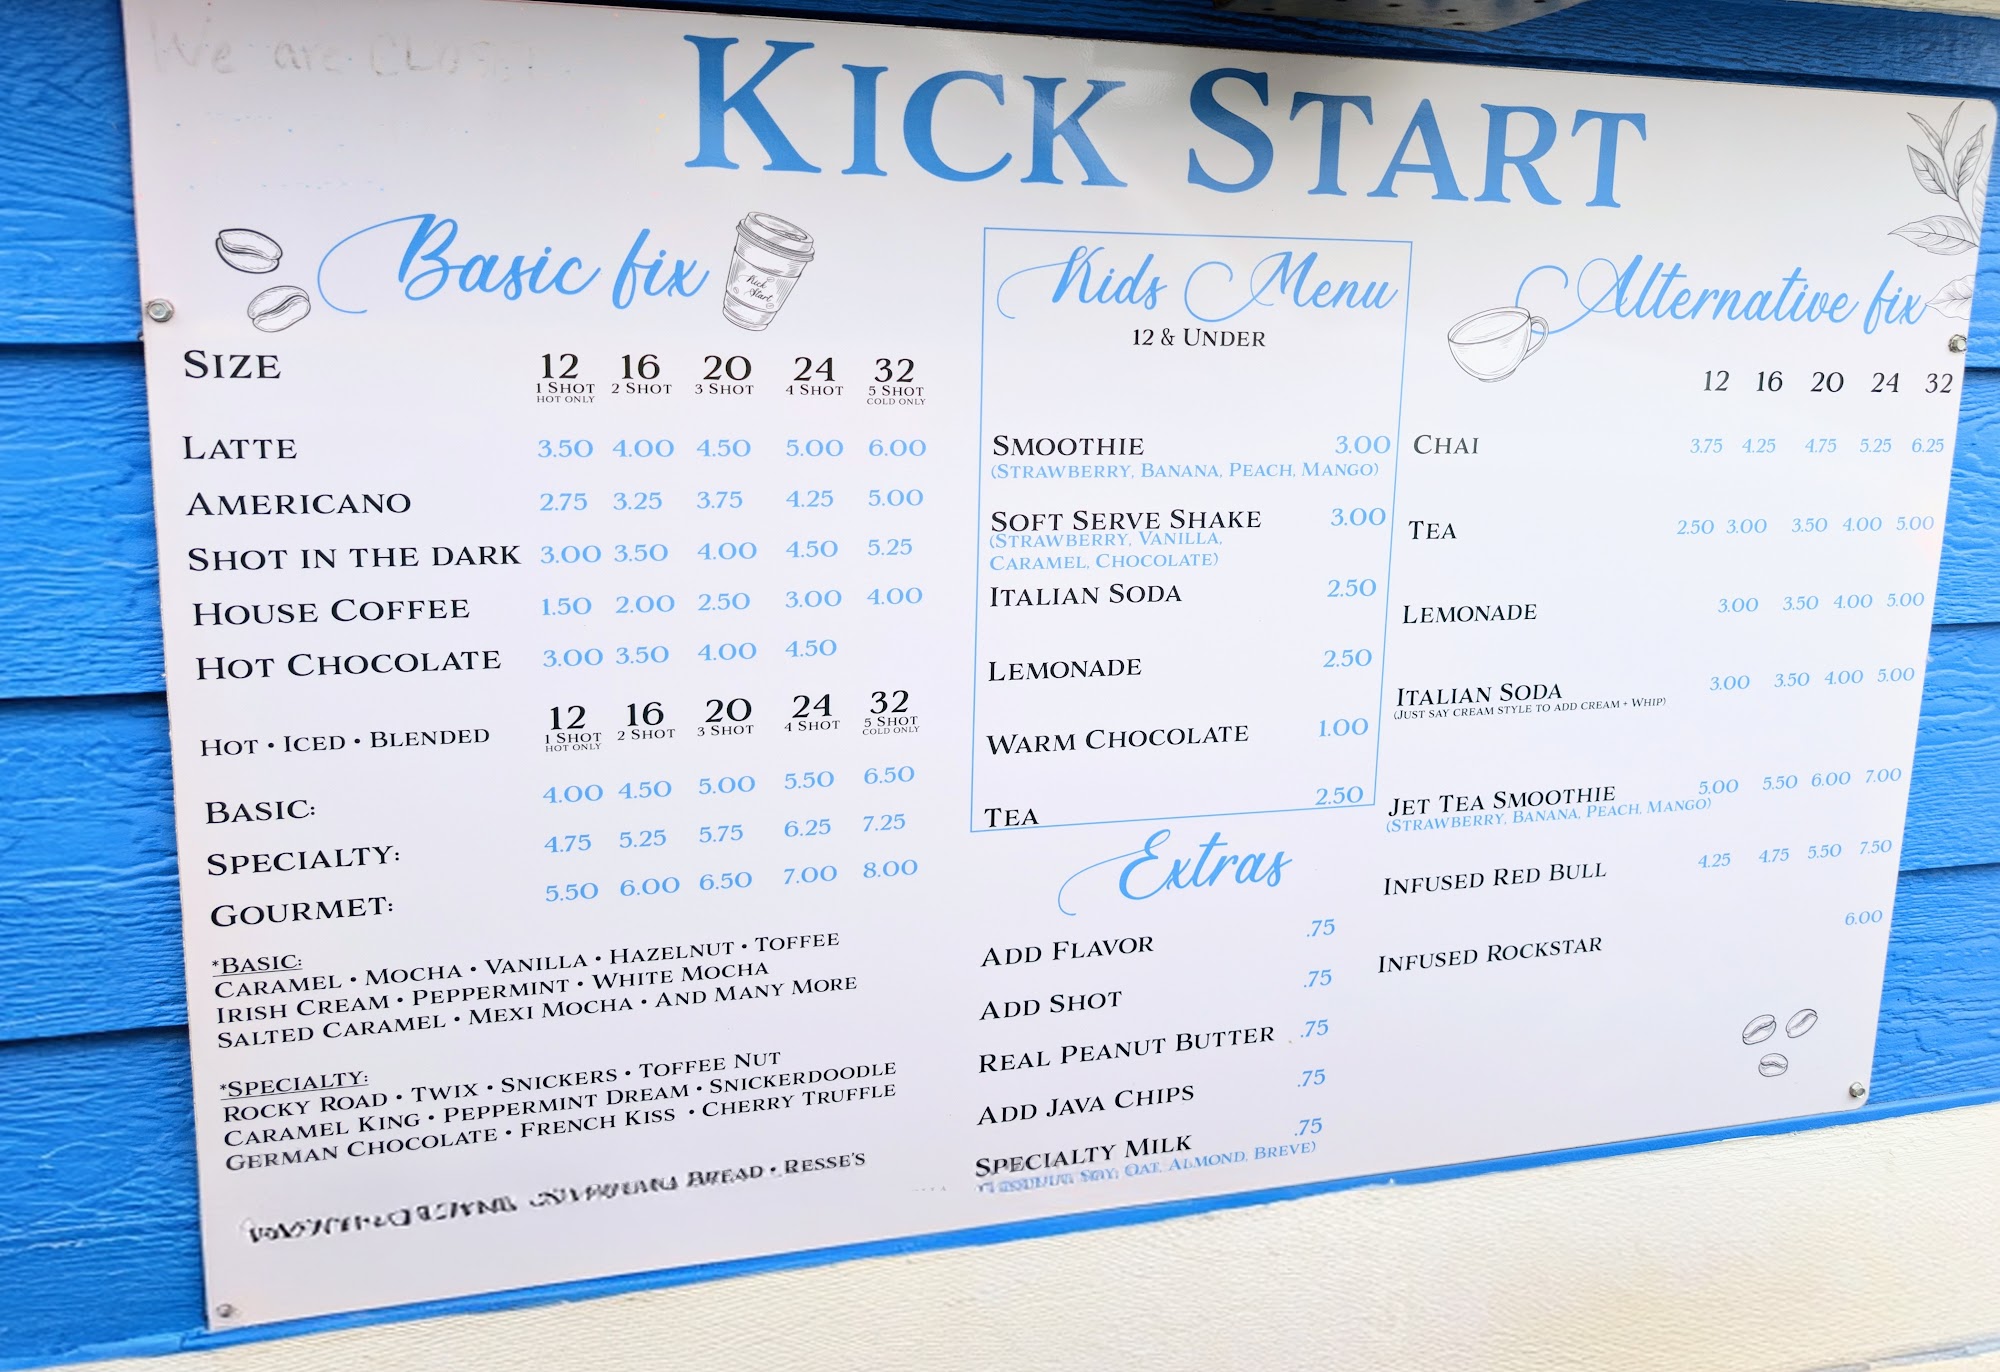 We are CLOSED
KICK START
Basic fix
Kick
Start
SIZE 12 16 20 24 32
1 SHOT 2 SHOT 3 SHOT 4 SHOT 5 SHOT
HOT ONLY COLD ONLY
LATTE 3.50 4.00 4.50 5.00 6.00
AMERICANO 2.75 3.25 3.75 4.25 5.00
SHOT IN THE DARK 3.00 3.50 4.00 4.50 5.25
HOUSE COFFEE 1.50 2.00 2.50 3.00 4.00
HOT CHOCOLATE 3.00 3.50 4.00 4.50
HOT • ICED • BLENDED 12 16 20 24 32
1 SHOT 2 SHOT 3 SHOT 4 SHOT 5 SHOT
HOT ONLY COLD ONLY
BASIC: 4.00 4.50 5.00 5.50 6.50
SPECIALTY: 4.75 5.25 5.75 6.25 7.25
GOURMET: 5.50 6.00 6.50 7.00 8.00
*BASIC:
CARAMEL • MOCHA • VANILLA • HAZELNUT • TOFFEE
IRISH CREAM • PEPPERMINT • WHITE MOCHA
SALTED CARAMEL • MEXI MOCHA • AND MANY MORE
*SPECIALTY:
ROCKY ROAD • TWIX • SNICKERS • TOFFEE NUT
CARAMEL KING • PEPPERMINT DREAM • SNICKERDOODLE
GERMAN CHOCOLATE • FRENCH KISS • CHERRY TRUFFLE
BREAD • RESSE'S
Kids Menu
12 & UNDER
SMOOTHIE 3.00
(STRAWBERRY, BANANA, PEACH, MANGO)
SOFT SERVE SHAKE 3.00
(STRAWBERRY, VANILLA,
CARAMEL, CHOCOLATE)
ITALIAN SODA 2.50
LEMONADE 2.50
WARM CHOCOLATE 1.00
TEA 2.50
Extras
ADD FLAVOR .75
ADD SHOT .75
REAL PEANUT BUTTER .75
ADD JAVA CHIPS .75
SPECIALTY MILK .75
SOY, OAT, ALMOND, BREVE)
Alternative fix
12 16 20 24 32
CHAI 3.75 4.25 4.75 5.25 6.25
TEA 2.50 3.00 3.50 4.00 5.00
LEMONADE 3.00 3.50 4.00 5.00
ITALIAN SODA 3.00 3.50 4.00 5.00
(JUST SAY CREAM STYLE TO ADD CREAM + WHIP)
JET TEA SMOOTHIE 5.00 5.50 6.00 7.00
(STRAWBERRY, BANANA, PEACH, MANGO)
INFUSED RED BULL 4.25 4.75 5.50 7.50
INFUSED ROCKSTAR 6.00